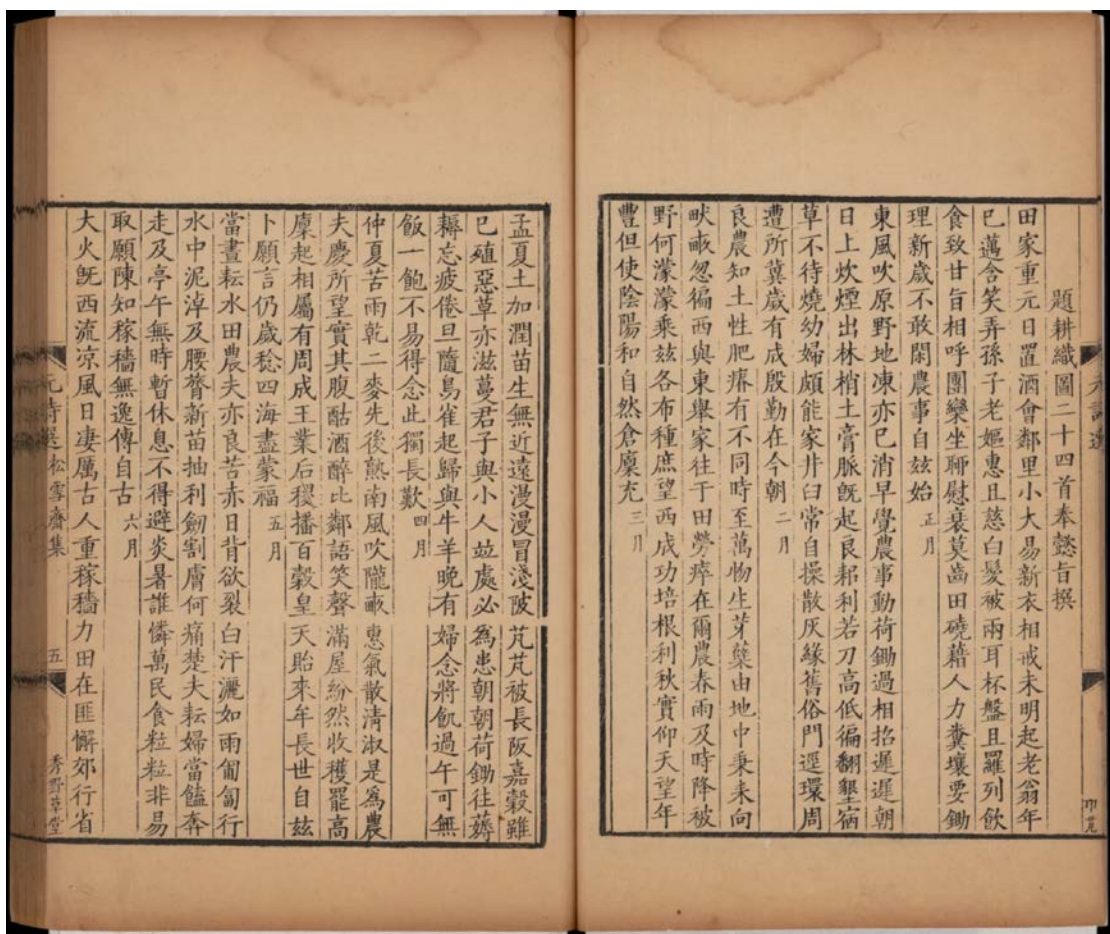 題耕織圖二十四首奉懿旨撰
田家重元日置酒會鄰里小大易新衣相戒未明起老翁年
已邁含笑弄孫子老嫗惠且慈白髮被兩耳杯盤且羅列飲
食致甘旨相呼團欒坐聊慰衰莫齒田磽藉人力糞壤要鋤
理新歲不敢閑農事自玆始 正月
東風吹原野地凍亦已消早覺農事動荷鋤過相招遲遲朝
日上炊煙出林梢土膏脈旣起良耜利若刀高低徧翻墾宿
草不待燒幼婦頗能家井臼常自操散灰緣舊俗門逕環周
遭所冀歲有成殷勤在今朝 二月
良農知土性肥瘠有不同時至萬物生芽蘖由地中秉耒向
畎畝忽徧西與東舉家往于田勞瘁在爾農春雨及時降被
野何濛濛乘玆各布種庶望西成功培根利秋實仰天望年
豐但使陰陽和自然倉廩充 三月
孟夏土加潤苗生無近遠漫漫冒淺陂芃芃被長阪嘉穀雖
已殖惡草亦滋蔓君子與小人竝處必爲患朝朝荷鋤往薅
耨忘疲倦旦隨鳥雀起歸與牛羊晚有婦念將飢過午可無
飯一飽不易得念此獨長歎 四月
仲夏苦雨乾二麥先後熟南風吹隴畝惠氣散清淑是爲農
夫慶所望實其腹酤酒醉比鄰語笑聲滿屋紛然收穫罷高
廩起相屬有周成王業后稷播百穀皇天貽來牟長世自玆
卜願言仍歲稔四海盡蒙福 五月
當晝耘水田農夫亦良苦赤日背欲裂白汗灑如雨匍匐行
水中泥淖及腰膂新苗抽利劒割膚何痛楚夫耘婦當饁奔
走及亭午無時暫休息不得避炎暑誰憐萬民食粒粒非易
取願陳知稼穡無逸傳自古 六月
大火旣西流涼風日凄厲古人重稼穡力田在匪懈郊行省
元詩選 松雪齋集 五 秀野草堂